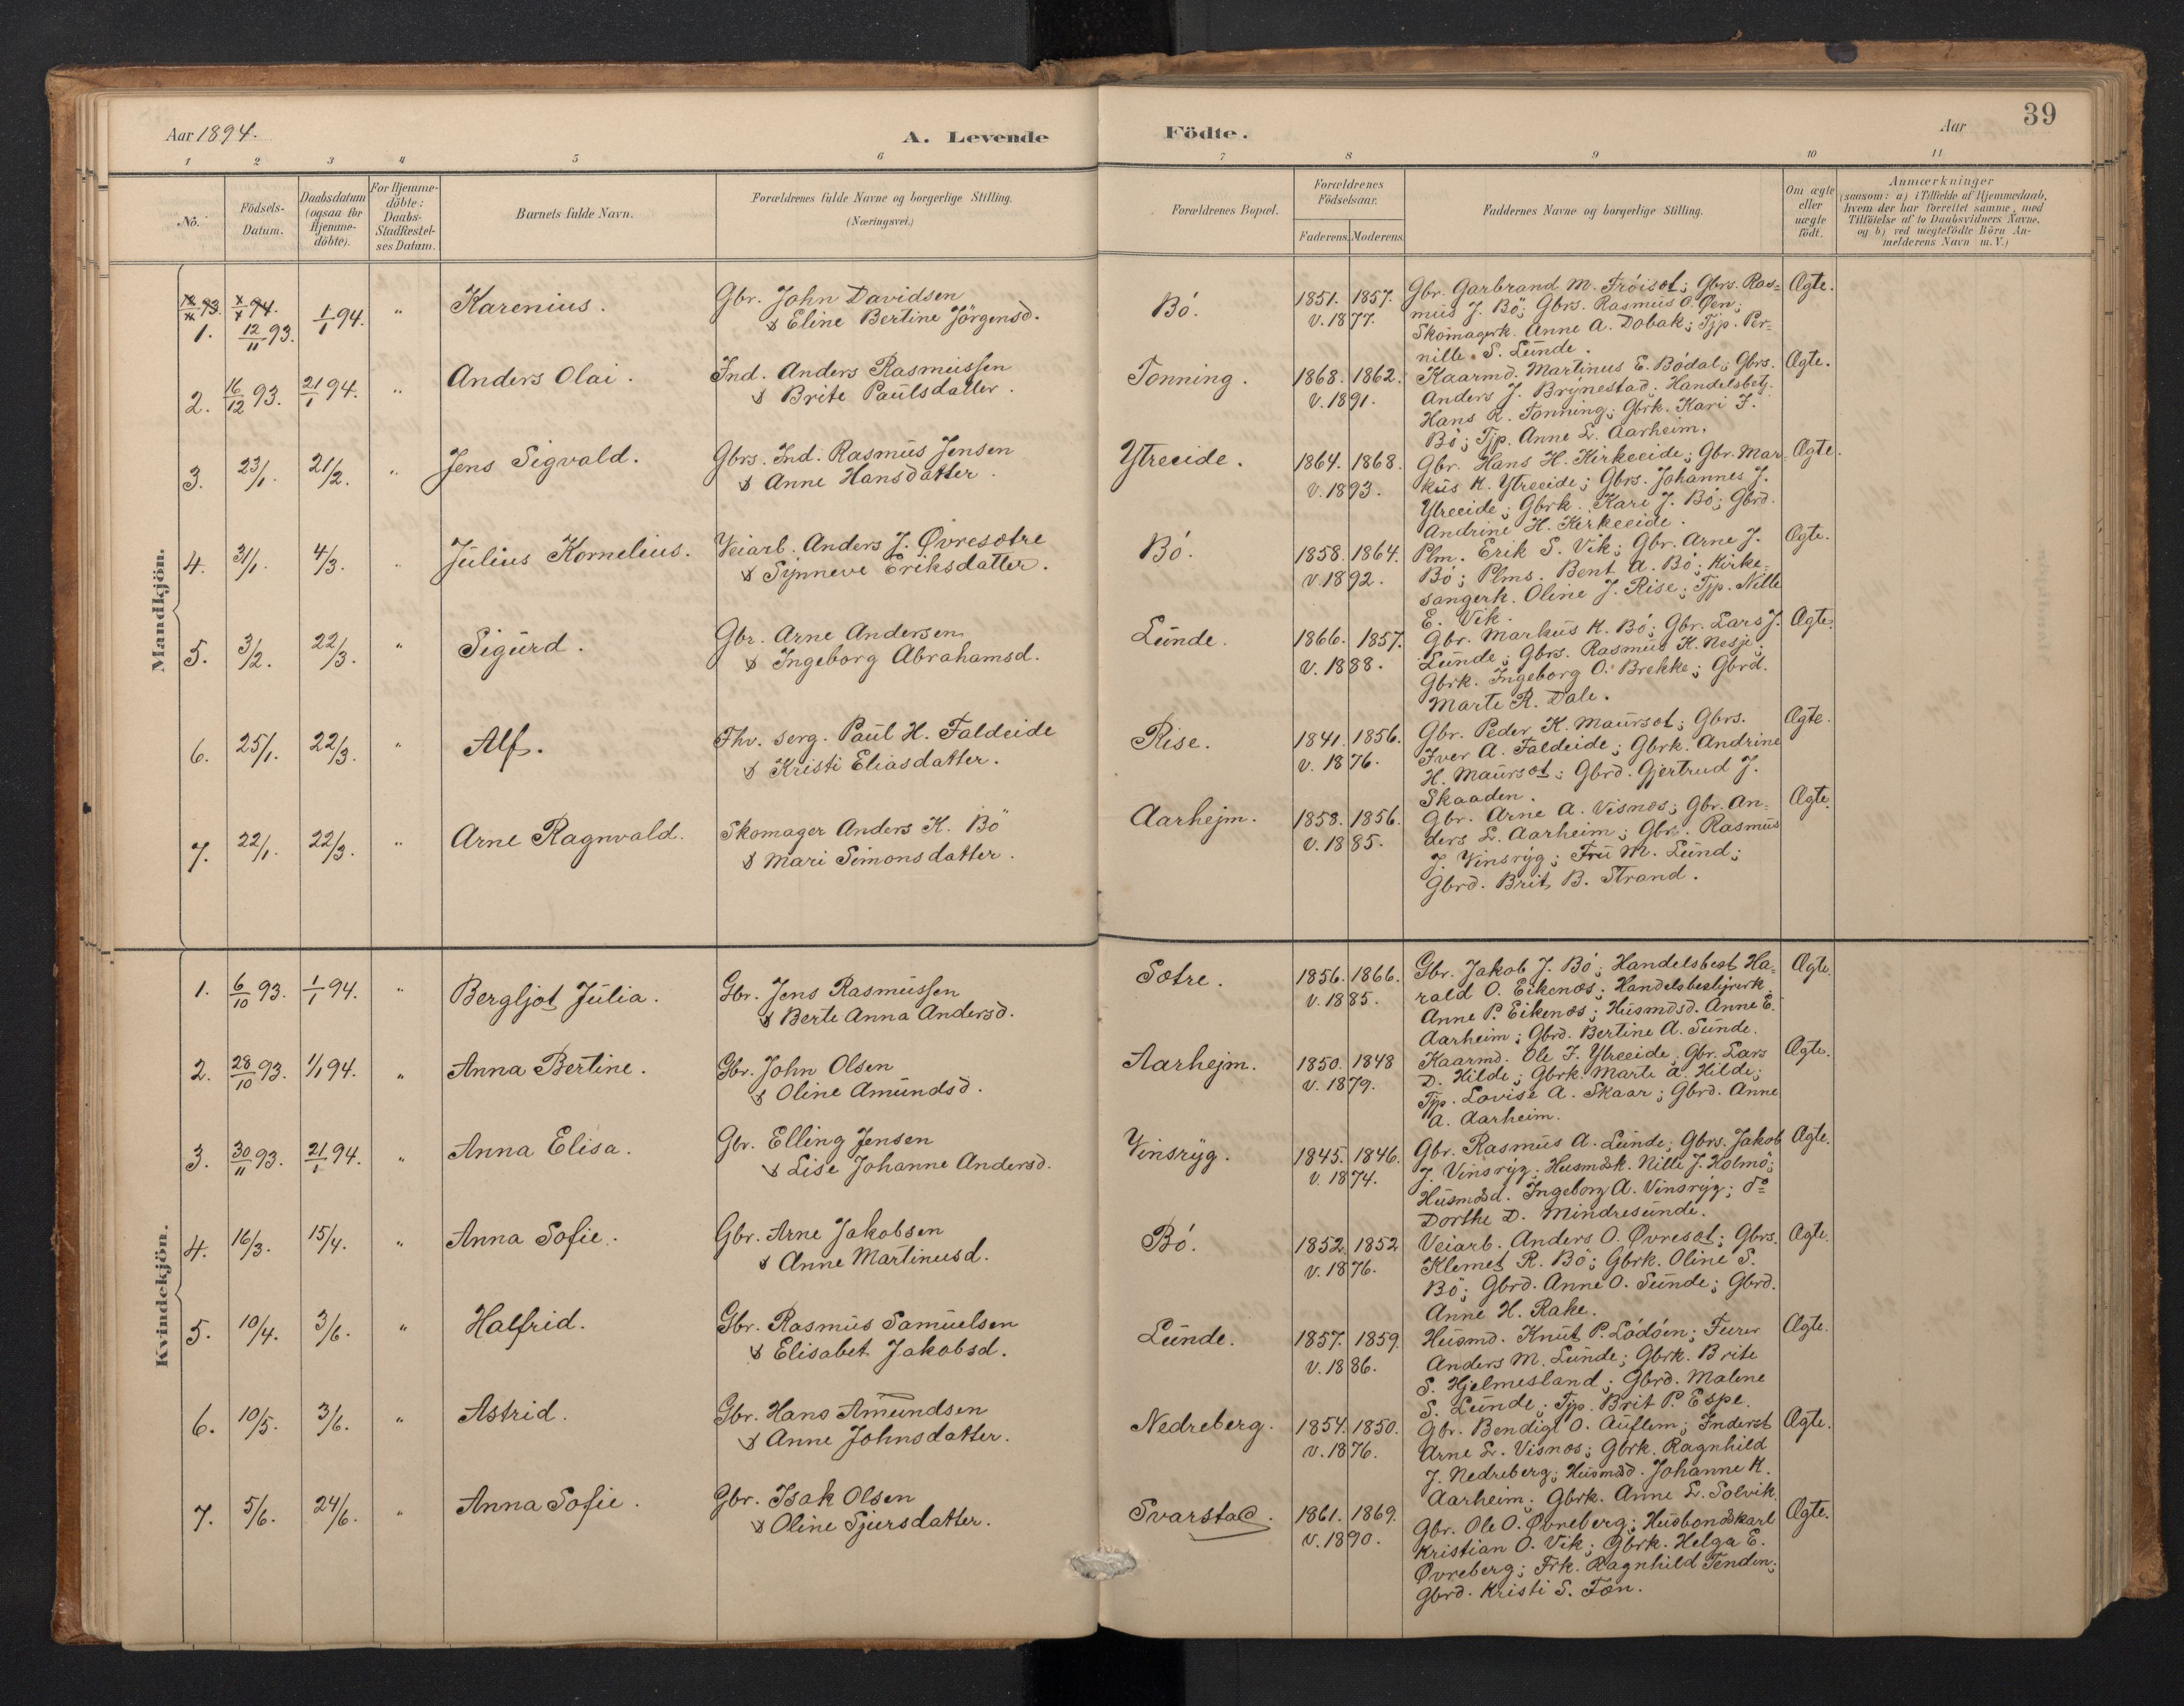 Aar 1894.
A. Levende Födte.
Aar
39
1 2 3 4 5 6 7 8 9 10 11
No.
Födsels-Datum.
Daabsdatum (ogsaa for Hjemme-döbte).
For Hjemme-döbte: Daabs-Stadfæstel-ses Datum.
Barnets fulde Navn.
Forældrenes fulde Navne og borgerlige Stilling.
(Næringsvei.)
Forældrenes Bopæl.
Forældrenes Födselsaar.
Faderens. Moderens.
Faddernes Navne og borgerlige Stilling.
Om ægte eller uægte födt.
Anmærkninger
(saasom: a) i Tilfælde af Hjemmedaab,
hvem der har forrettet samme, med
Tilföielse af to Daabsvidners Navne,
og b) ved uægtefödte Börn An-
melderens Navn m. V.)
Mandkjön.
1. 12/11 93. 1/1 94. " Karenius. Gbr. John Davidsen
& Eline Bertine Jörgensd.
Bö. 1851. 1857.
v. 1877.
Gbr. Garbrand M. Fröisæt; Gbrs. Ras=
mus J. Bö; Gbrs. Rasmus O. Øen;
Skomagerk. Anne A. Dobak; Tjp. Per=
nille S. Lunde.
Ægte.
2. 16/12 93. 21/1 94. " Anders Olai. Ind. Anders Rasmussen
& Brite Paulsdatter.
Tonning. 1868. 1862.
v. 1891.
Kaarmd. Martinus E. Bödal; Gbrs.
Anders J. Brynestad; Handelsbetj.
Hans R. Tonning; Gbrk. Kari J.
Bö; Tjp. Anne L. Aarheim.
Ægte.
3. 23/1. 21/2. " Jens Sigvald. Gbrs. Ind. Rasmus Jensen
& Anne Hansdatter.
Ytreeide. 1864. 1868.
v. 1893.
Gbr. Hans H. Kirkeeide; Gbr. Mar=
kus K. Ytreeide; Gbrs. Johannes J.
Ytreeide; Gbrk. Kari J. Bö; Gbrd.
Andrine H. Kirkeeide.
Ægte.
4. 31/1. 4/3. " Julius Kornelius. Veiarb. Anders J. Øvresætre
& Synneve Eriksdatter.
Bö. 1858. 1864.
v. 1892.
Plm. Erik S. Vik; Gbr. Arne J.
Bö; Plms. Bent A. Bö; Kirke=
sangerk. Oline J. Rise; Tjp. Nille
E. Vik.
Ægte.
5. 3/2. 22/3. " Sigurd. Gbr. Arne Andersen
& Ingeborg Abrahamsd.
Lunde. 1866. 1857.
v. 1888.
Gbr. Markus K. Bö; Gbr. Lars J.
Lunde; Gbrs. Rasmus K. Nesje;
Gbrk. Ingeborg O. Brekke; Gbrd.
Marte R. Dale.
Ægte.
6. 25/1. 22/3. " Alf. Fhv. serg. Paul H. Faldeide
& Kristi Eliasdatter.
Rise. 1841. 1856.
v. 1876.
Gbr. Peder K. Maursæt; Gbrs.
Iver A. Faldeide; Gbrk. Andrine
H. Maursæt; Gbrd. Gjertrud J.
Skaaden.
Ægte.
7. 22/1. 22/3. " Arne Ragnvald. Skomager Anders K. Bö
& Mari Simonsdatter.
Aarhejm. 1858. 1856.
v. 1885.
Gbr. Arne A. Visnæs; Gbr. An=
ders L. Aarheim; Gbrs. Rasmus
J. Vinsryg; Fru M. Lund;
Gbrd. Brit B. Strand.
Ægte.
Kvindekjön.
1. 6/10 93. 1/1 94. " Bergljot Julia. Gbr. Jens Rasmussen
& Berte Anna Andersd.
Sætre. 1856. 1866.
v. 1885.
Gbr. Jakob J. Bö; Handelsbest Ha=
rald O. Eikenæs; Handelsbestyrerk.
Anne P. Eikenæs; Husmdsd. Anne E.
Aarheim; Gbrd. Bertine A. Sunde.
Ægte.
2. 28/10 93. 1/1 94. " Anna Bertine. Gbr. John Olsen
& Oline Amundsd.
Aarhejm. 1850. 1848
v. 1879.
Kaarmd. Ole J. Ytreeide; Gbr. Lars
D. Hilde; Gbrk. Marte A. Hilde;
Tjp. Lovise A. Skaar; Gbrd. Anne
A. Aarheim.
Ægte.
3. 30/11 93. 21/1 94. " Anna Elisa. Gbr. Elling Jensen
& Lise Johanne Andersd.
Vinsryg. 1845. 1846.
v. 1874.
Gbr. Rasmus A. Lunde; Gbrs. Jakob
J. Vinsryg; Husmdsk. Nille J. Holmö;
Husmdsd. Ingeborg A. Vinsryg; do
Dorthe D. Mindresunde.
Ægte.
4. 16/3. 15/4. " Anna Sofie. Gbr. Arne Jakobsen
& Anne Martinusd.
Bö. 1852. 1852
v. 1876.
Veiarb. Anders O. Øvresæt; Gbrs.
Klemet R. Bö; Gbrk. Oline S.
Bö; Gbrd. Anne O. Sunde; Gbrd.
Anne H. Rake.
Ægte.
5. 10/4. 3/6. " Halfrid. Gbr. Rasmus Samuelsen
& Elisabet Jakobsd.
Lunde. 1857. 1859.
v. 1886.
Husmd. Knut P. Lödöen; Furer
Anders M. Lunde; Gbrk. Brite
S. Hjelmesland; Gbrd. Malene
S. Lunde; Tjp. Brit P. Espe.
Ægte.
6. 10/5. 3/6. " Astrid. Gbr. Hans Amundsen
& Anne Johnsdatter.
Nedreberg. 1854. 1850.
v. 1876.
Gbr. Bendigt O. Auflem; Inderst
Arne L. Visnæs; Gbrk. Ragnhild
J. Nedreberg; Husmdsd. Johanne K.
Aarheim; Gbrk. Anne L. Solvik.
Ægte.
7. 5/6. 24/6. " Anna Sofie. Gbr. Isak Olsen
& Oline Sjursdatter.
Svarstad. 1861. 1869.
v. 1890.
Gbr. Ole O. Øvreberg; Husbondskarl
Kristian O. Vik; Gbrk. Helga E.
Øvreberg; Frk. Ragnhild Tenden;
Gbrd. Kristi S. Tæn.
Ægte.